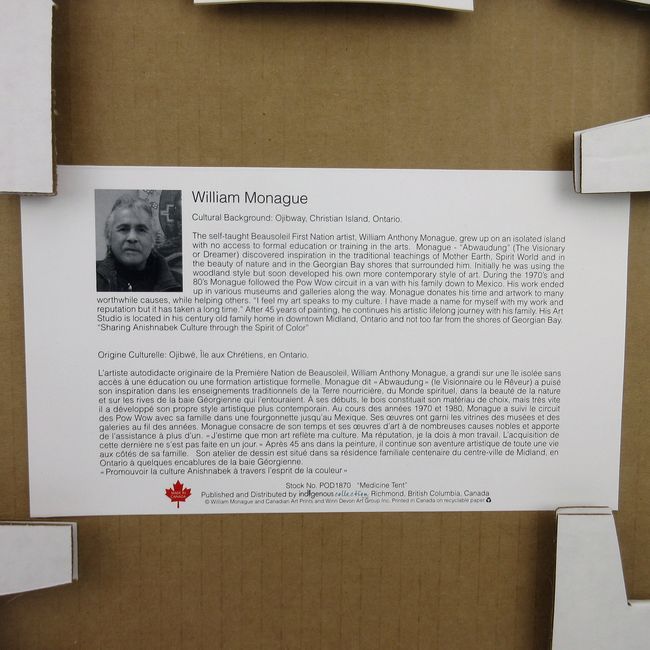 William Monague
Cultural Background: Ojibway, Christian Island, Ontario.
The self-taught Beausoleil First Nation artist, William Anthony Monague, grew up on an isolated island
with no access to formal education or training in the arts. Monague - "Abwaudung" (The Visionary
or Dreamer) discovered inspiration in the traditional teachings of Mother Earth, Spirit World and in
the beauty of nature and in the Georgian Bay shores that surrounded him. Initially he was using the
woodland style but soon developed his own more contemporary style of art. During the 1970's and
80's Monague followed the Pow Wow circuit in a van with his family down to Mexico. His work ended
up in various museums and galleries along the way. Monague donates his time and artwork to many
worthwhile causes, while helping others. "I feel my art speaks to my culture. I have made a name for myself with my work and
reputation but it has taken a long time." After 45 years of painting, he continues his artistic lifelong journey with his family. His Art
Studio is located in his century old family home in downtown Midland, Ontario and not too far from the shores of Georgian Bay.
"Sharing Anishnabek Culture through the Spirit of Color"
Origine Culturelle: Ojibwé, Île aux Chrétiens, en Ontario.
L'artiste autodidacte originaire de la Première Nation de Beausoleil, William Anthony Monague, a grandi sur une île isolée sans
accès à une éducation ou une formation artistique formelle. Monague dit « Abwaudung » (le Visionnaire ou le Rêveur) a puisé
son inspiration dans les enseignements traditionnels de la Terre nourricière, du Monde spirituel, dans la beauté de la nature
et sur les rives de la baie Géorgienne qui l'entouraient. À ses débuts, le bois constituait son matériau de choix, mais très vite
il a développé son propre style artistique plus contemporain. Au cours des années 1970 et 1980, Monague a suivi le circuit
des Pow Wow avec sa famille dans une fourgonnette jusqu'au Mexique. Ses œuvres ont garni les vitrines des musées et des
galeries au fil des années. Monague consacre de son temps et ses œuvres d'art à de nombreuses causes nobles et apporte
de l'assistance à plus d'un. « J'estime que mon art reflète ma culture. Ma réputation, je la dois à mon travail. L'acquisition de
cette dernière ne s'est pas faite en un jour. » Après 45 ans dans la peinture, il continue son aventure artistique de toute une vie
aux côtés de sa famille. Son atelier de dessin est situé dans sa résidence familiale centenaire du centre-ville de Midland, en
Ontario à quelques encablures de la baie Géorgienne.
« Promouvoir la culture Anishnabek à travers l'esprit de la couleur »
Stock No. POD1870 "Medicine Tent"
MADE IN CANADA
Published and Distributed by indigenous collection, Richmond, British Columbia, Canada
© William Monague and Canadian Art Prints and Winn Devon Art Group Inc. Printed in Canada on recyclable paper